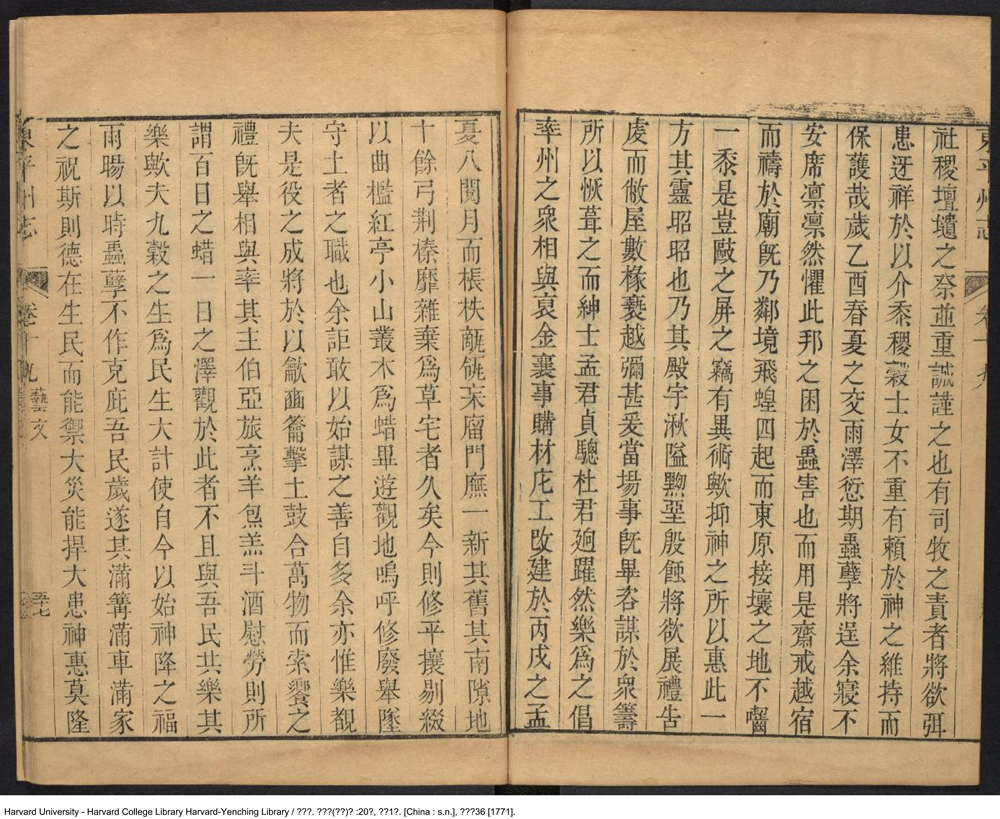 東平州志
卷十九
社稷壇壝之祭並重誠謹之也有司牧之責者將欲弭
患迓祥於以介黍稷穀士女不重有賴於神之維持而
保護哉歲乙酉春夏之交雨澤愆期蟲孽將逞余寢不
安席凛凛然懼此邦之困於蟲害也而用是齋戒越宿
而禱於廟旣乃鄰境飛蝗四起而東原接壤之地不齧
一黍是豈敺之屏之竊有異術歟抑神之所以惠此一
方其靈昭昭也乃其殿宇湫隘黝堊殷蝕將欲展禮告
虔而敝屋數椽褻越彌甚爰當場事旣畢咨謀於衆籌
所以恢葺之而紳士孟君貞驄杜君廻躍然樂為之倡
率州之衆相與裒金襄事購材庀工改建於丙戌之孟
夏八閱月而棖柣甋瓴宋廇門廡一新其舊其南隙地
十餘弓荆榛靡雜棄為草宅者久矣今則修平攘剔綴
以曲檻紅亭小山叢木為蜡畢遊觀地嗚呼修廢舉墜
守土者之職也余詎敢以始謀之善自多余亦惟樂覩
夫是役之成將於以龡豳籥擊土鼓合萬物而索饗之
禮旣舉相與率其主伯亞旅烹羊炰羔斗酒慰勞則所
謂百日之蜡一日之澤觀於此者不且與吾民共樂其
樂歟夫九穀之生為民生大計使自今以始神降之福
雨暘以時蟊孽不作克庇吾民歲遂其滿篝滿車滿家
之祝斯則德在生民而能禦大災能捍大患神惠莫隆
東平州志
卷十九
藝文
五十七
Harvard University - Harvard College Library Harvard-Yenching Library / ???. ???(??)? :20?, ??1?. [China : s.n.], ???36 [1771].